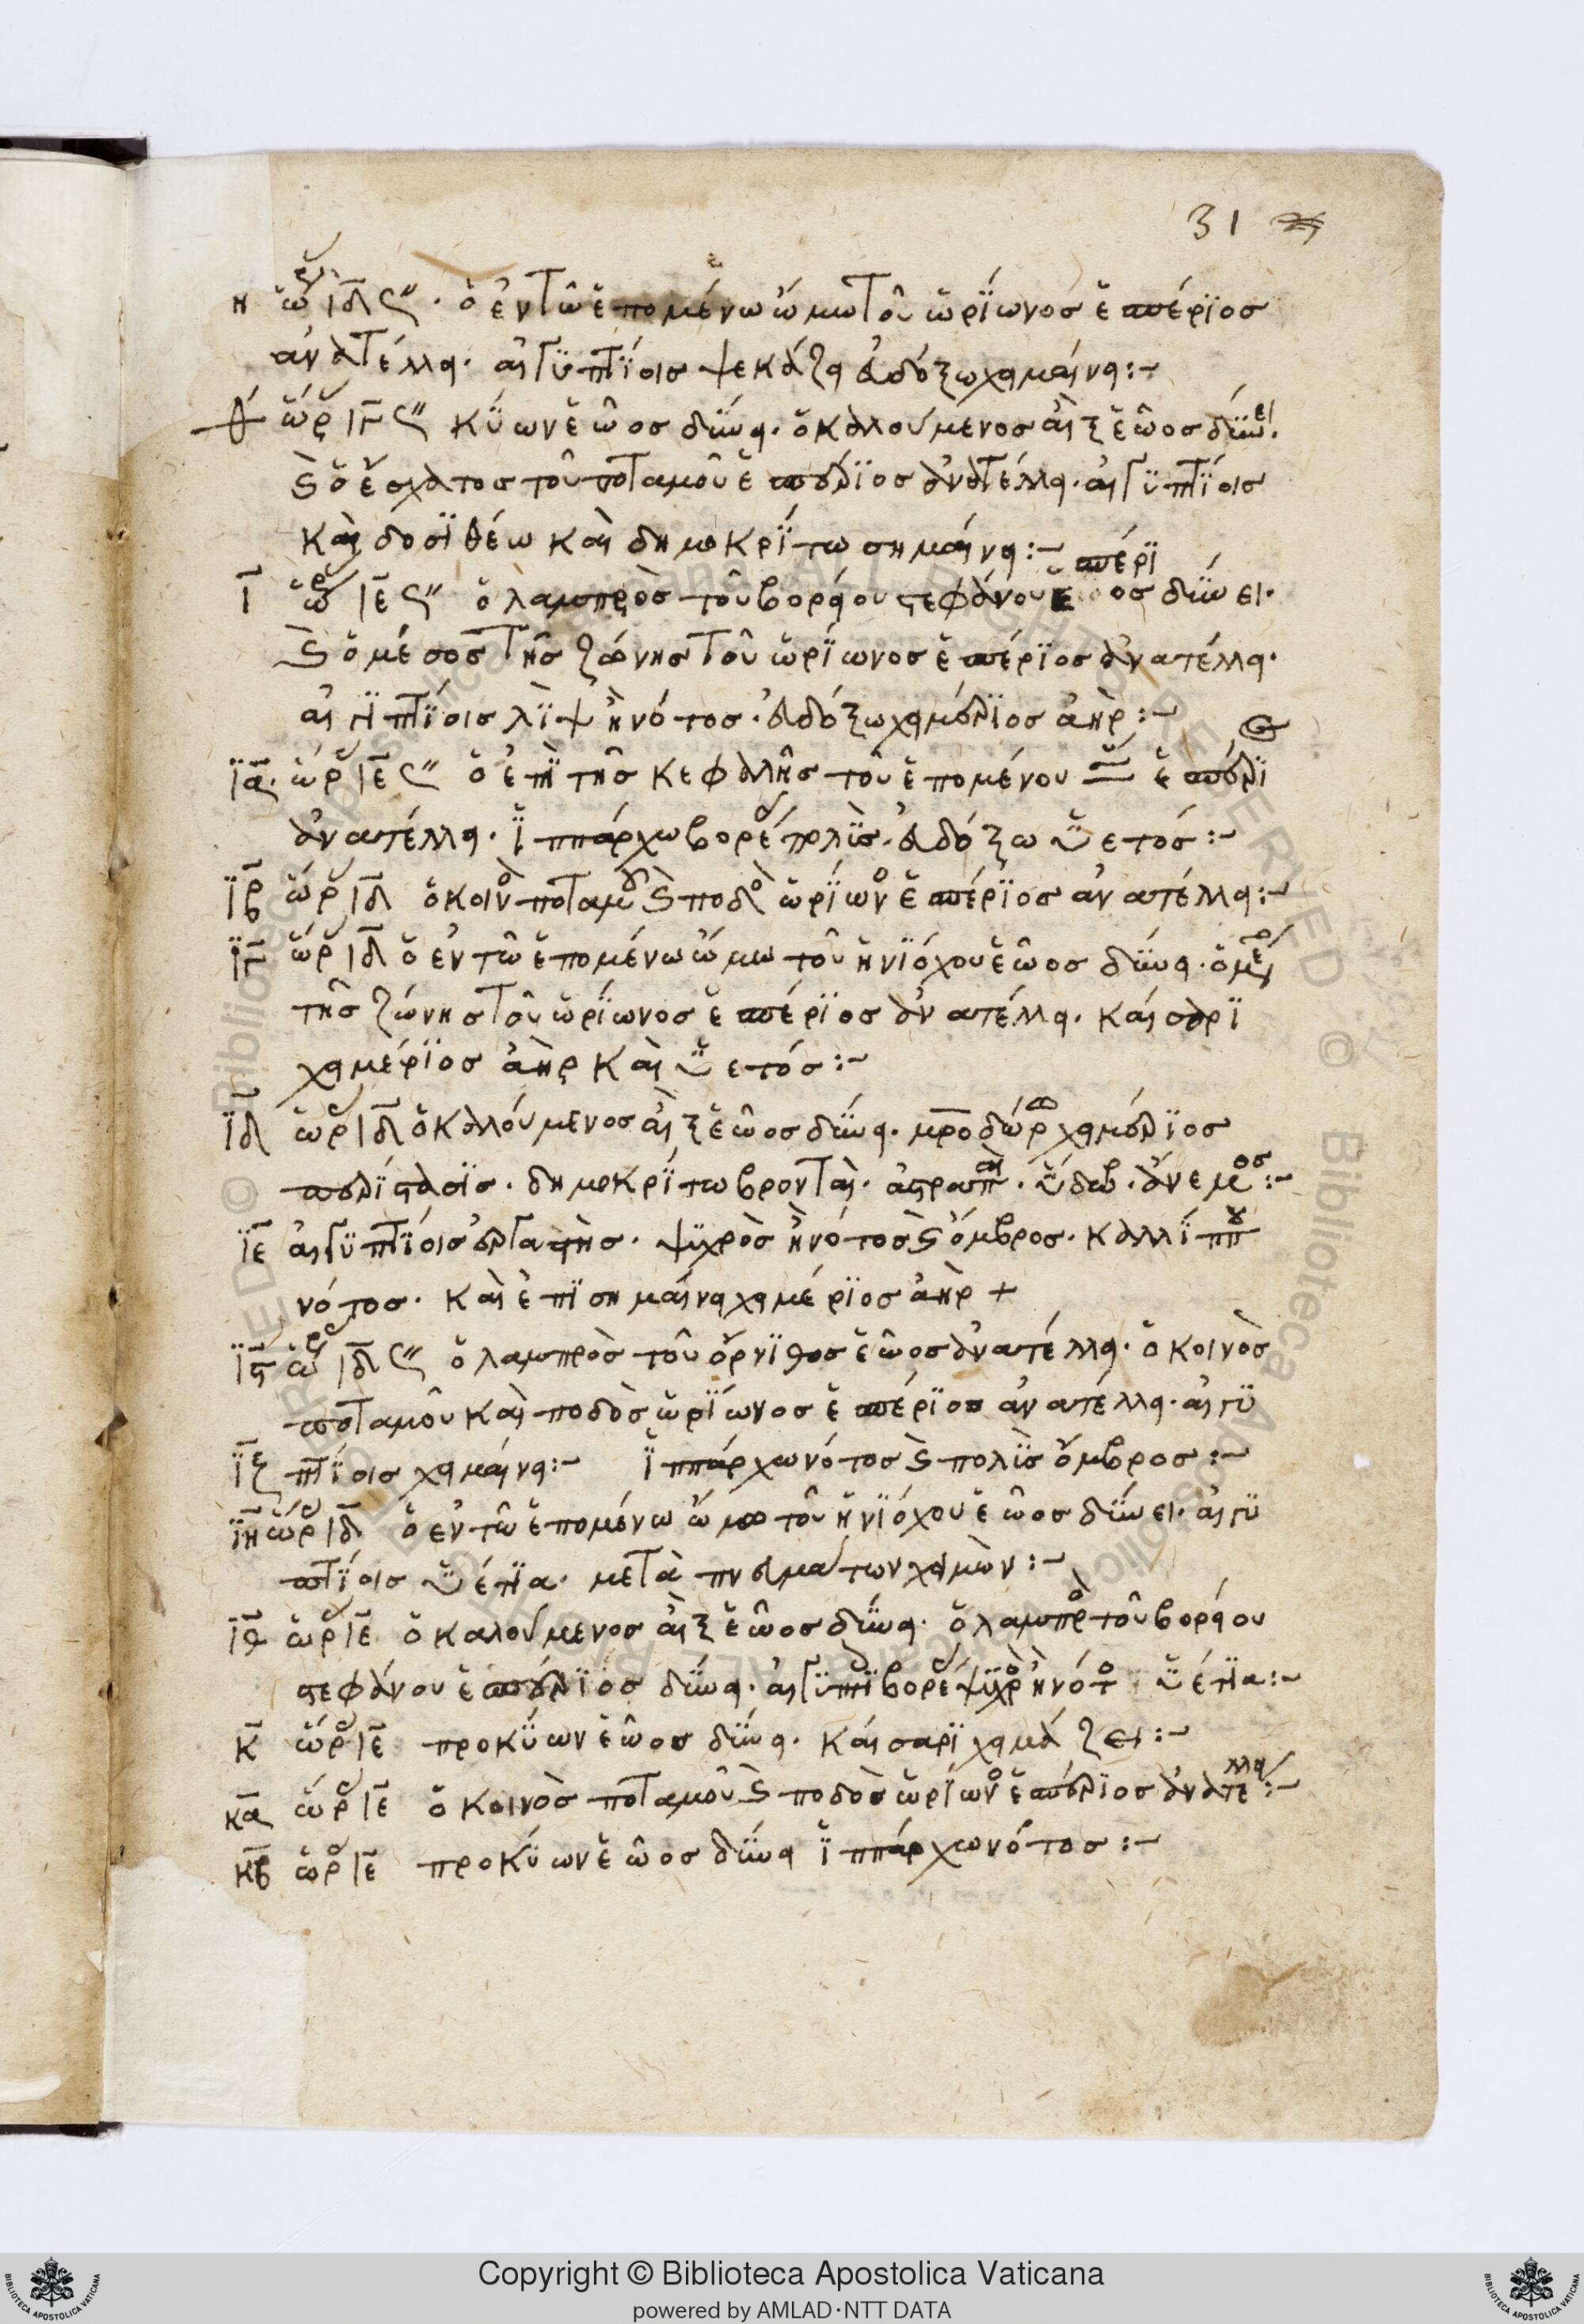 31
η ὡρ ιδ ϛ″ · ὁ ἐν τῶ ἑπομένω ὤμω τοῦ ὠρίωνος ἑσπέριος
ἀνατέλλει· αἰγϋπτίοις ψεκάζει ἐυδόξω χειμαίνει:~
θ ὡρ ιγ ϛ″ κύων ἑῶος δύνει· ὁ καλούμενος αἲξ ἑῶος δύνει·
ϗ ὁ ἔσχατος τοῦ ποταμοῦ ἑσπέριος ἀνατέλλει· αἰγϋπτίοις
καὶ δοσϊθέω καὶ δημοκρίτω σημαίνει:~
ι ὡρ ιε ϛ″ ὁ λαμπρὸς τοῦ βορείου στεφάνου ἑσπέριος δύνει·
ϗ ὁ μέσος τῆς ζώνης τοῦ ὠρίωνος ἑσπέριος ἀνατέλλει·
αἰγϋπτίοις λὶψ ἢ νότος· ἐυδόξω χειμέριος ἀὴρ:~
ια· ὡρ ιε ϛ″ ὁ ἐπὶ τῆς κεφαλῆς τοῦ ἑπομένου ἑσπέρι
ἀνατέλλει· ἱππάρχω βορέ πολὺς· ἐυδόξω ὑετός:~
ιβ ὡρ ιδ ὁ κοιν ποταμοῦ ϗ ποδὸ ὠρίων ἑσπέριος ἀνατέλλει:~
ιγ ὡρ ιδ ὁ ἐν τῶ ἑπομένω ὤμω τοῦ ἡνϊόχου ἑῶος δύνει· ὁ μέσ
τῆς ζώνης τοῦ ὠρίωνος ἑσπέριος ἀνατέλλει· καίσαρϊ
χειμέριος ἀὴρ καὶ ὑετός:~
ιδ ὡρ ιδ ὁ καλούμενος αἲξ ἑῶος δύνει· μροδώρω χειμέριος
περίστασϊς· δημοκρίτω βρονταὶ· ἀστραπαὶ· ὕδωρ· ἄνεμος:~
ιε αἰγϋπτίοις ψϋχρὸς ἢ νότος ϗ ὄμβρος· καλλίππ
νότος· καὶ ἐπϊσημαίνει χειμέριος ἀὴρ +
ιϛ ὡρ ιδ ϛ″ ὁ λαμπρὸς τοῦ ὄρνϊθος ἑῶος ἀνατέλλει· ὁ κοινὸς
ποταμοῦ καὶ ποδὸς ὠρίωνος ἑσπέριος ἀνατέλλει· αἰγϋ
ιζ πτίοις χειμαίνει:~ ἱππάρχω νότος ϗ πολὺς ὄμβρος:~
ιη ὡρ ιδ ὁ ἐν τῶ ἑπομένω ὤμω τοῦ ἡνϊόχου ἑῶος δύνει· αἰγϋ
πτίοις ὑέτια· μετὰ πνευμάτων χειμὼν:~
ιθ ὡρ ιε ὁ καλούμενος αἲξ ἑῶος δύνει· ὁ λαμπρὸ τοῦ βορείου
στεφάνου ἑσπέριος δύνει· αἰγϋπτϊ βορέ ψϋχρὸ ἢ νότο ὑέτια:~
κ ὡρ ιε προκύων ἑῶος δύνει· καίσαρϊ χειμάζει:~
κα ὡρ ιε ὁ κοινὸς ποταμοῦ ϗ ποδὸς ὠρίωνο ἑσπέριος ἀνατέλλει:~
κβ ὡρ ιε προκύων ἑῶος δύνει ἱππάρχω νότος:~
Copyright © Biblioteca Apostolica Vaticana
powered by AMLAD·NTT DATA